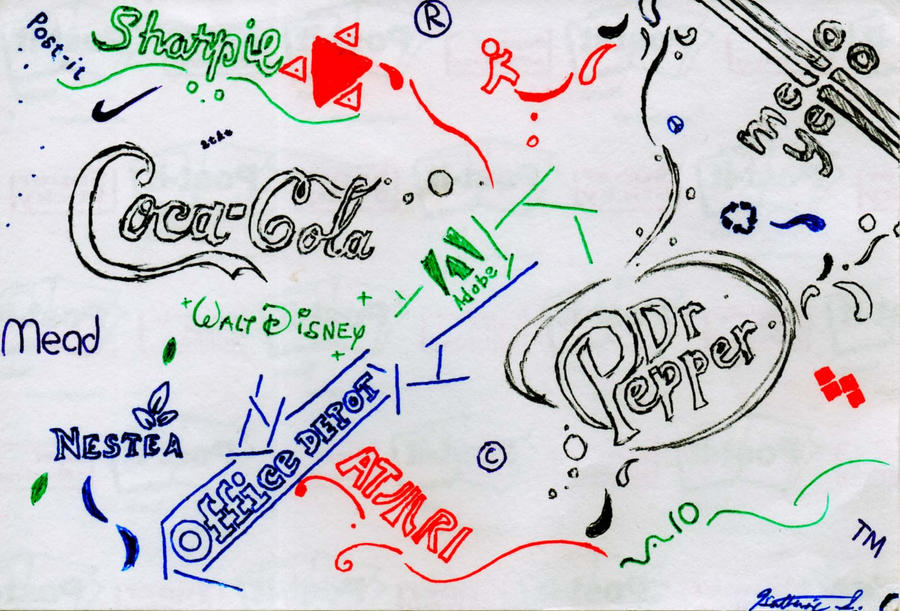 Post-it
Sharpie
®
me
yeo
at&t
Coca-Cola
Adobe
Walt Disney
Dr
Pepper
Mead
NESTEA
Office DEPOT
ATARI
©
TM